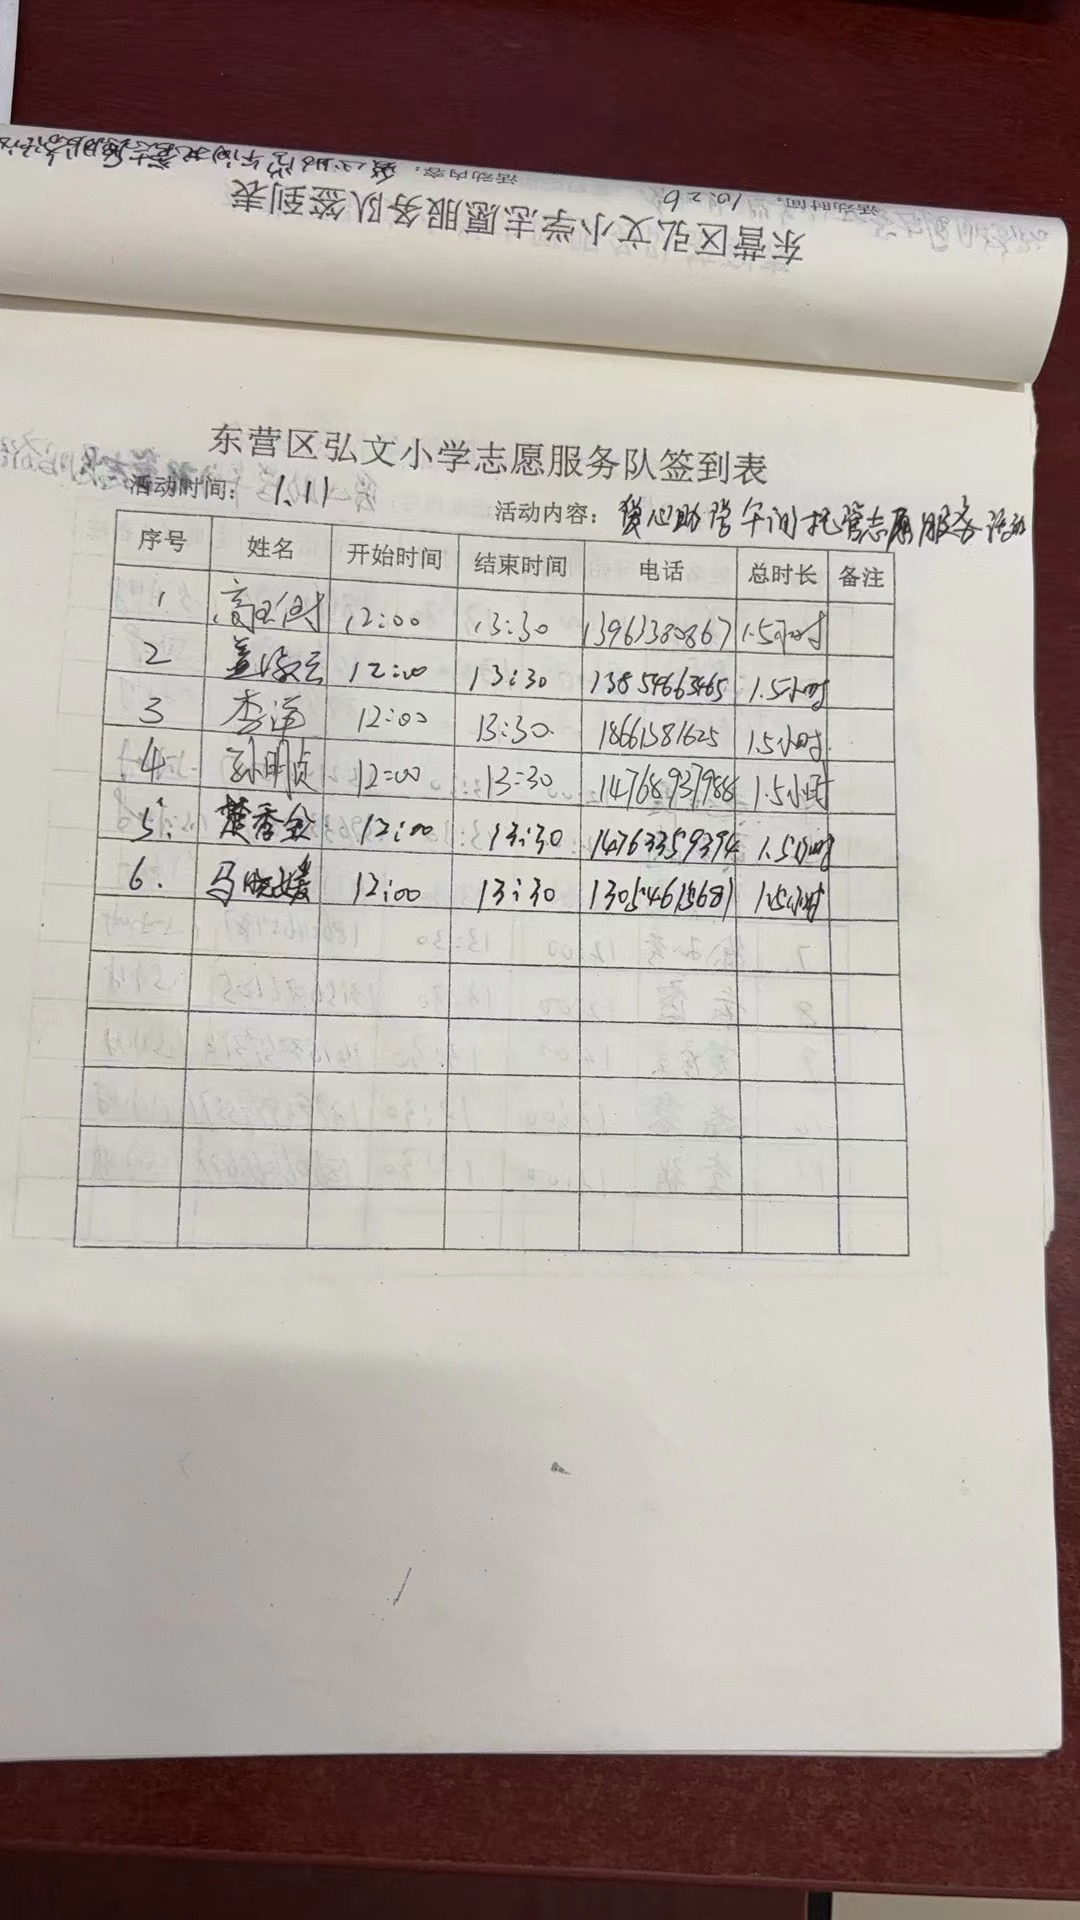 东营区弘文小学志愿服务队签到表
活动时间: 10.26 活动内容:
东营区弘文小学志愿服务队签到表
活动时间: 1.11 活动内容: 爱心助学午间托管志愿服务活动
序号 姓名 开始时间 结束时间 电话 总时长 备注
1 12:00 13:30 13961380867 1.5小时
2 12:00 13:30 13854663465 1.5小时
3 李萍 12:00 13:30. 18661381625 1.5小时
4 孙明贞 12:00 13:30 14768937988 1.5小时
5. 楚秀金 12:00 13:30 14763359394 1.5小时
6. 马晓媛 12:00 13:30 13054615681 1.5小时